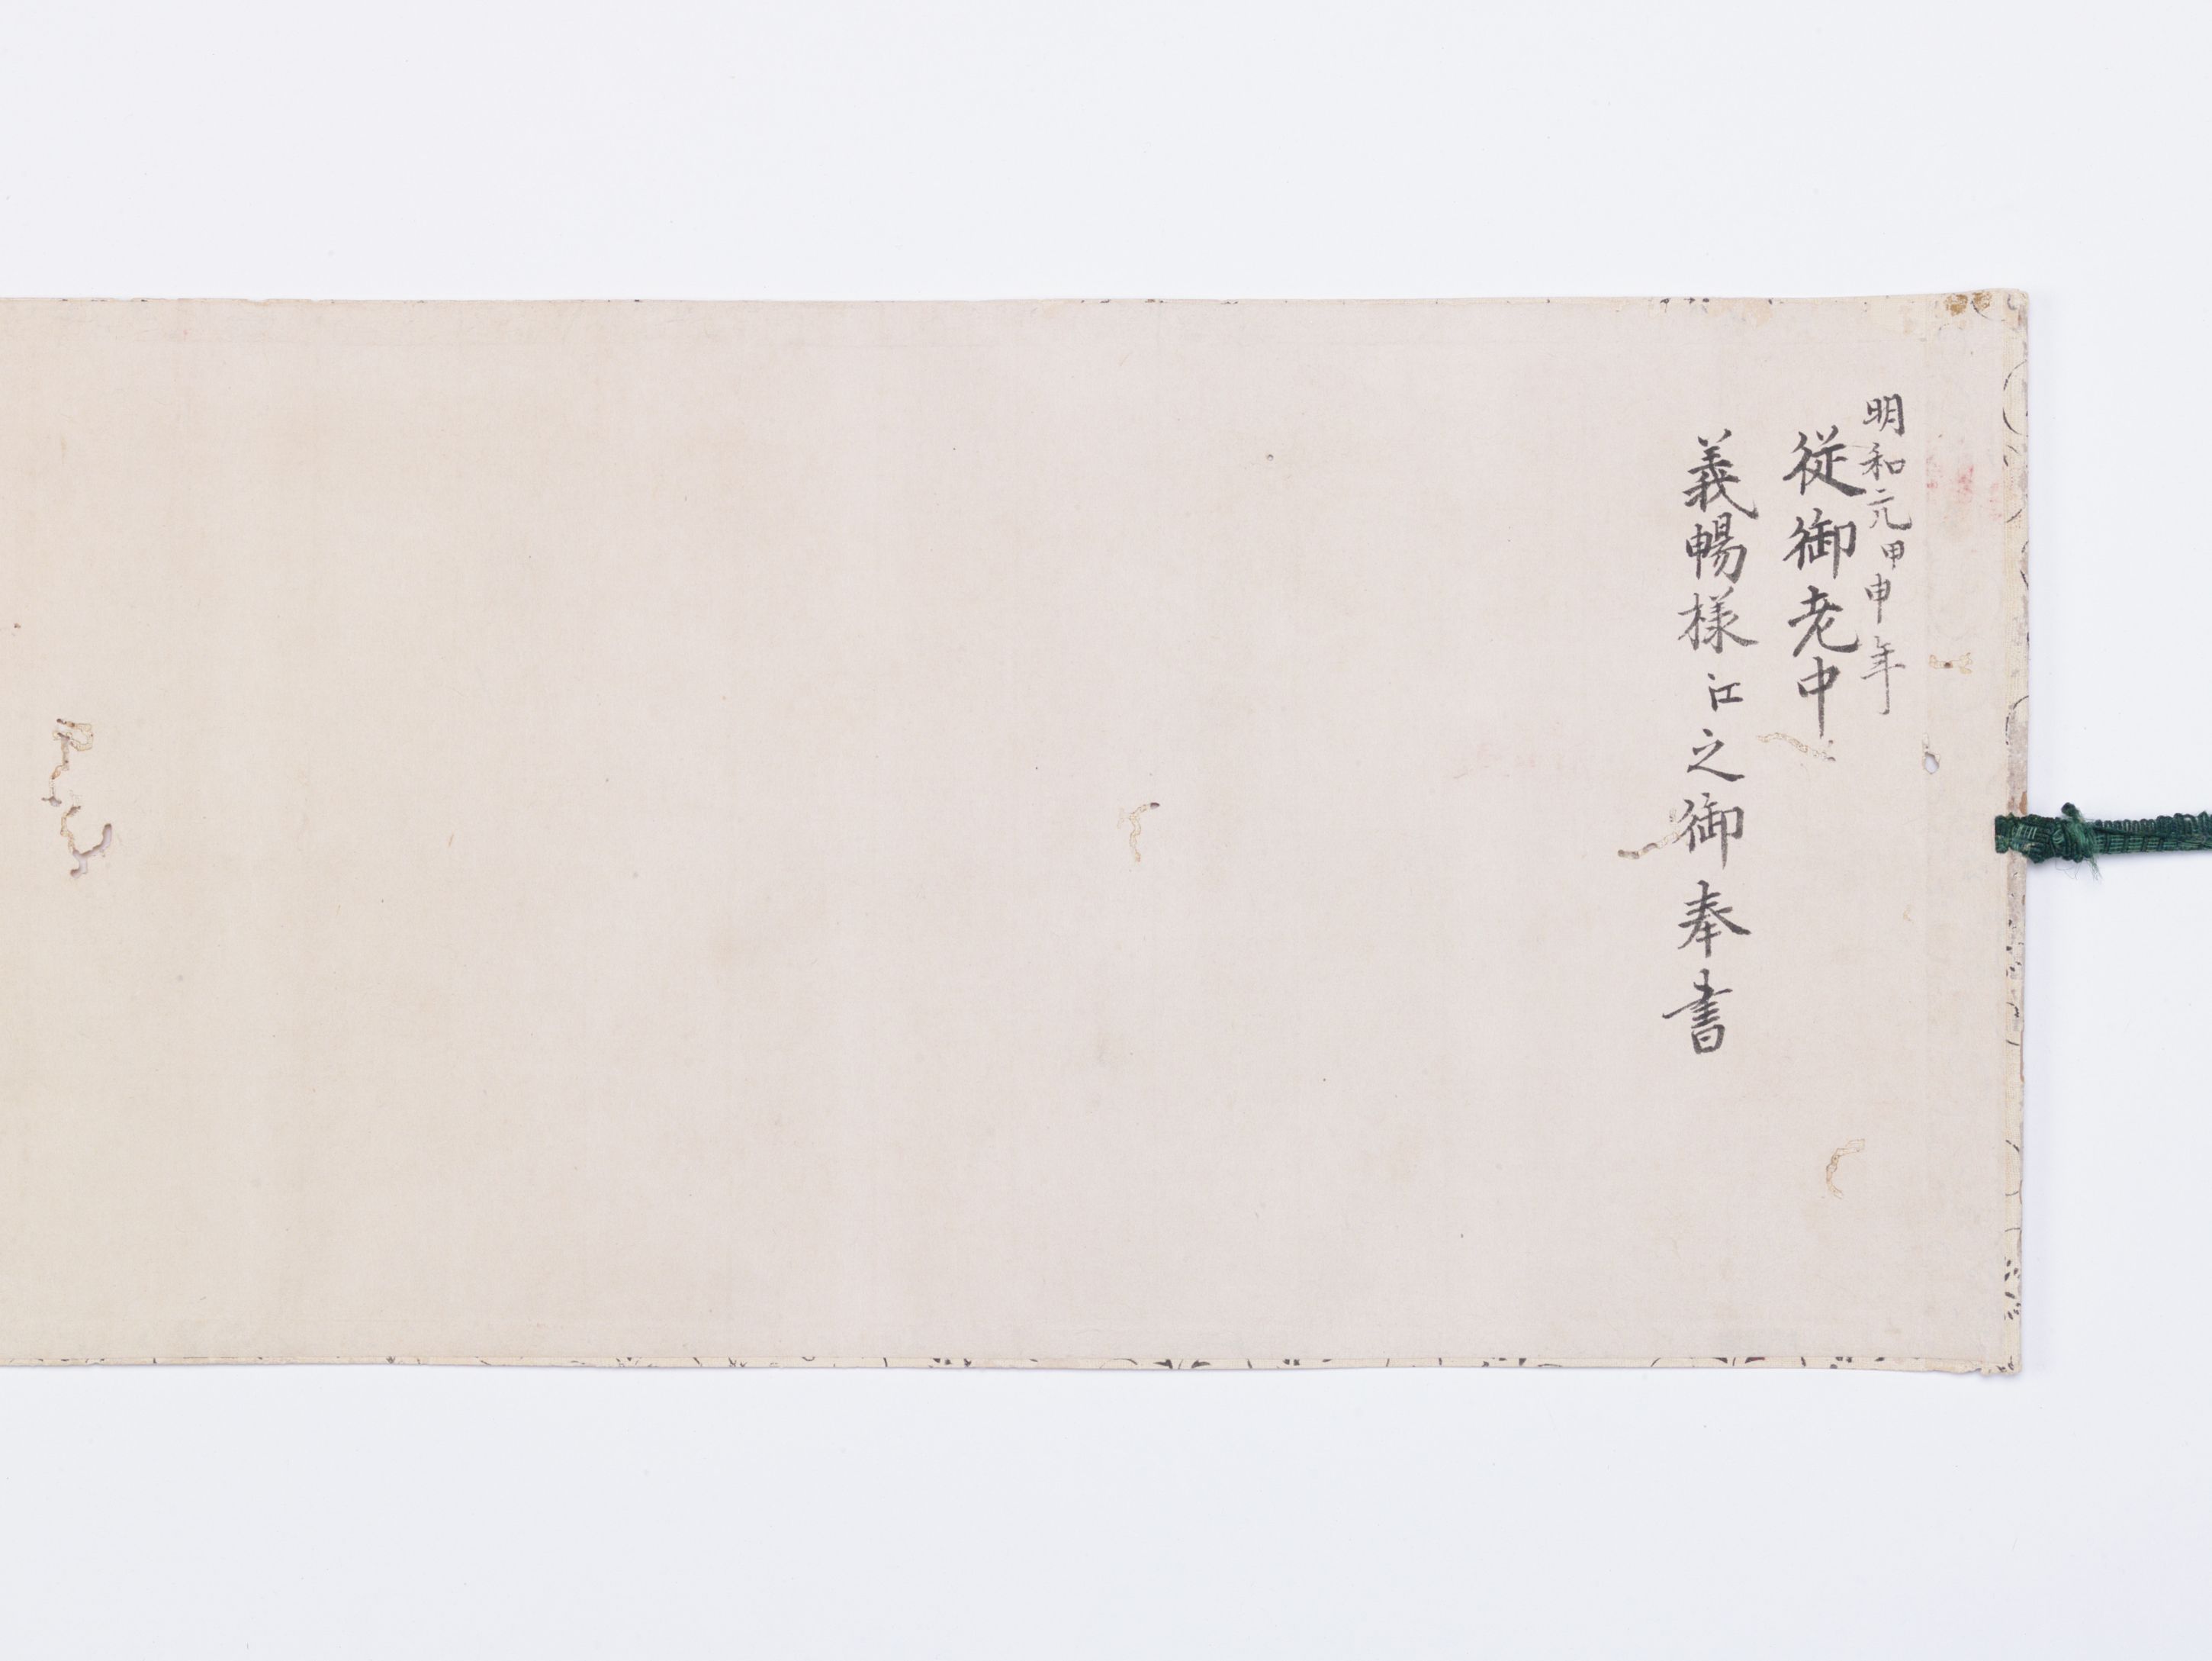 明和元甲申年
従御老中
義暢様江之御奉書